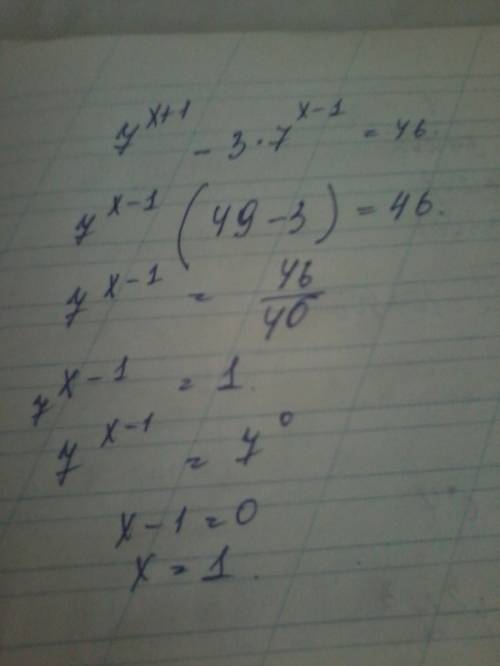 7^{x+1} - 3·7^{x-1} = 46.
7^{x-1} (49-3) = 46.
7^{x-1} = 46/46
7^{x-1} = 1.
7^{x-1} = 7^0
x-1=0
x=1.